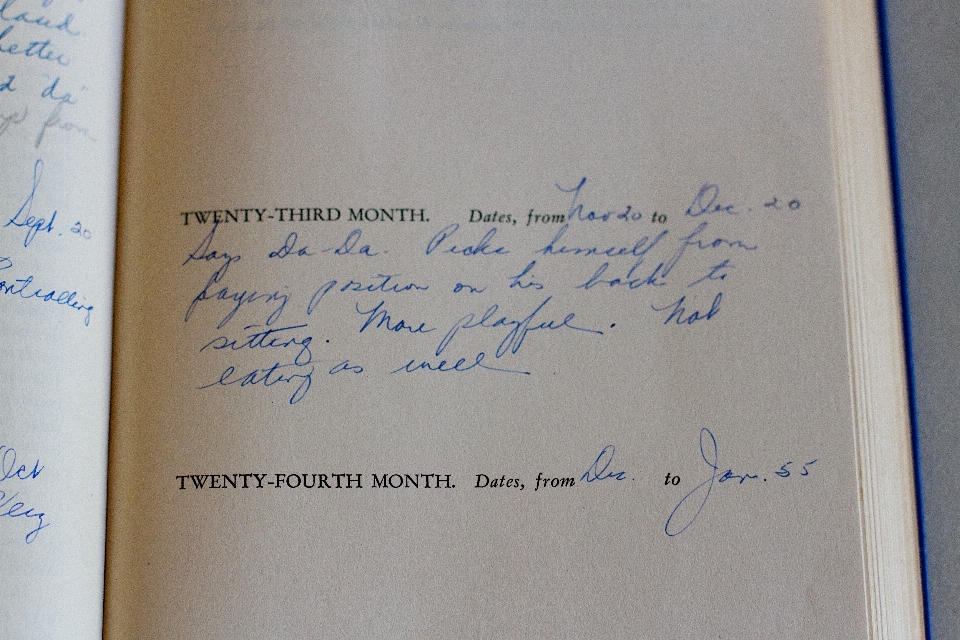 land
better
d da"
from
Sept. 20
Controlling
Oct
TWENTY-THIRD MONTH. Dates, from Nov 20 to Dec. 20
Says Da-Da. Picks himself from
laying position on his back to
sitting. More playful. Not
eating as well
TWENTY-FOURTH MONTH. Dates, from Dec. to Jan. 55